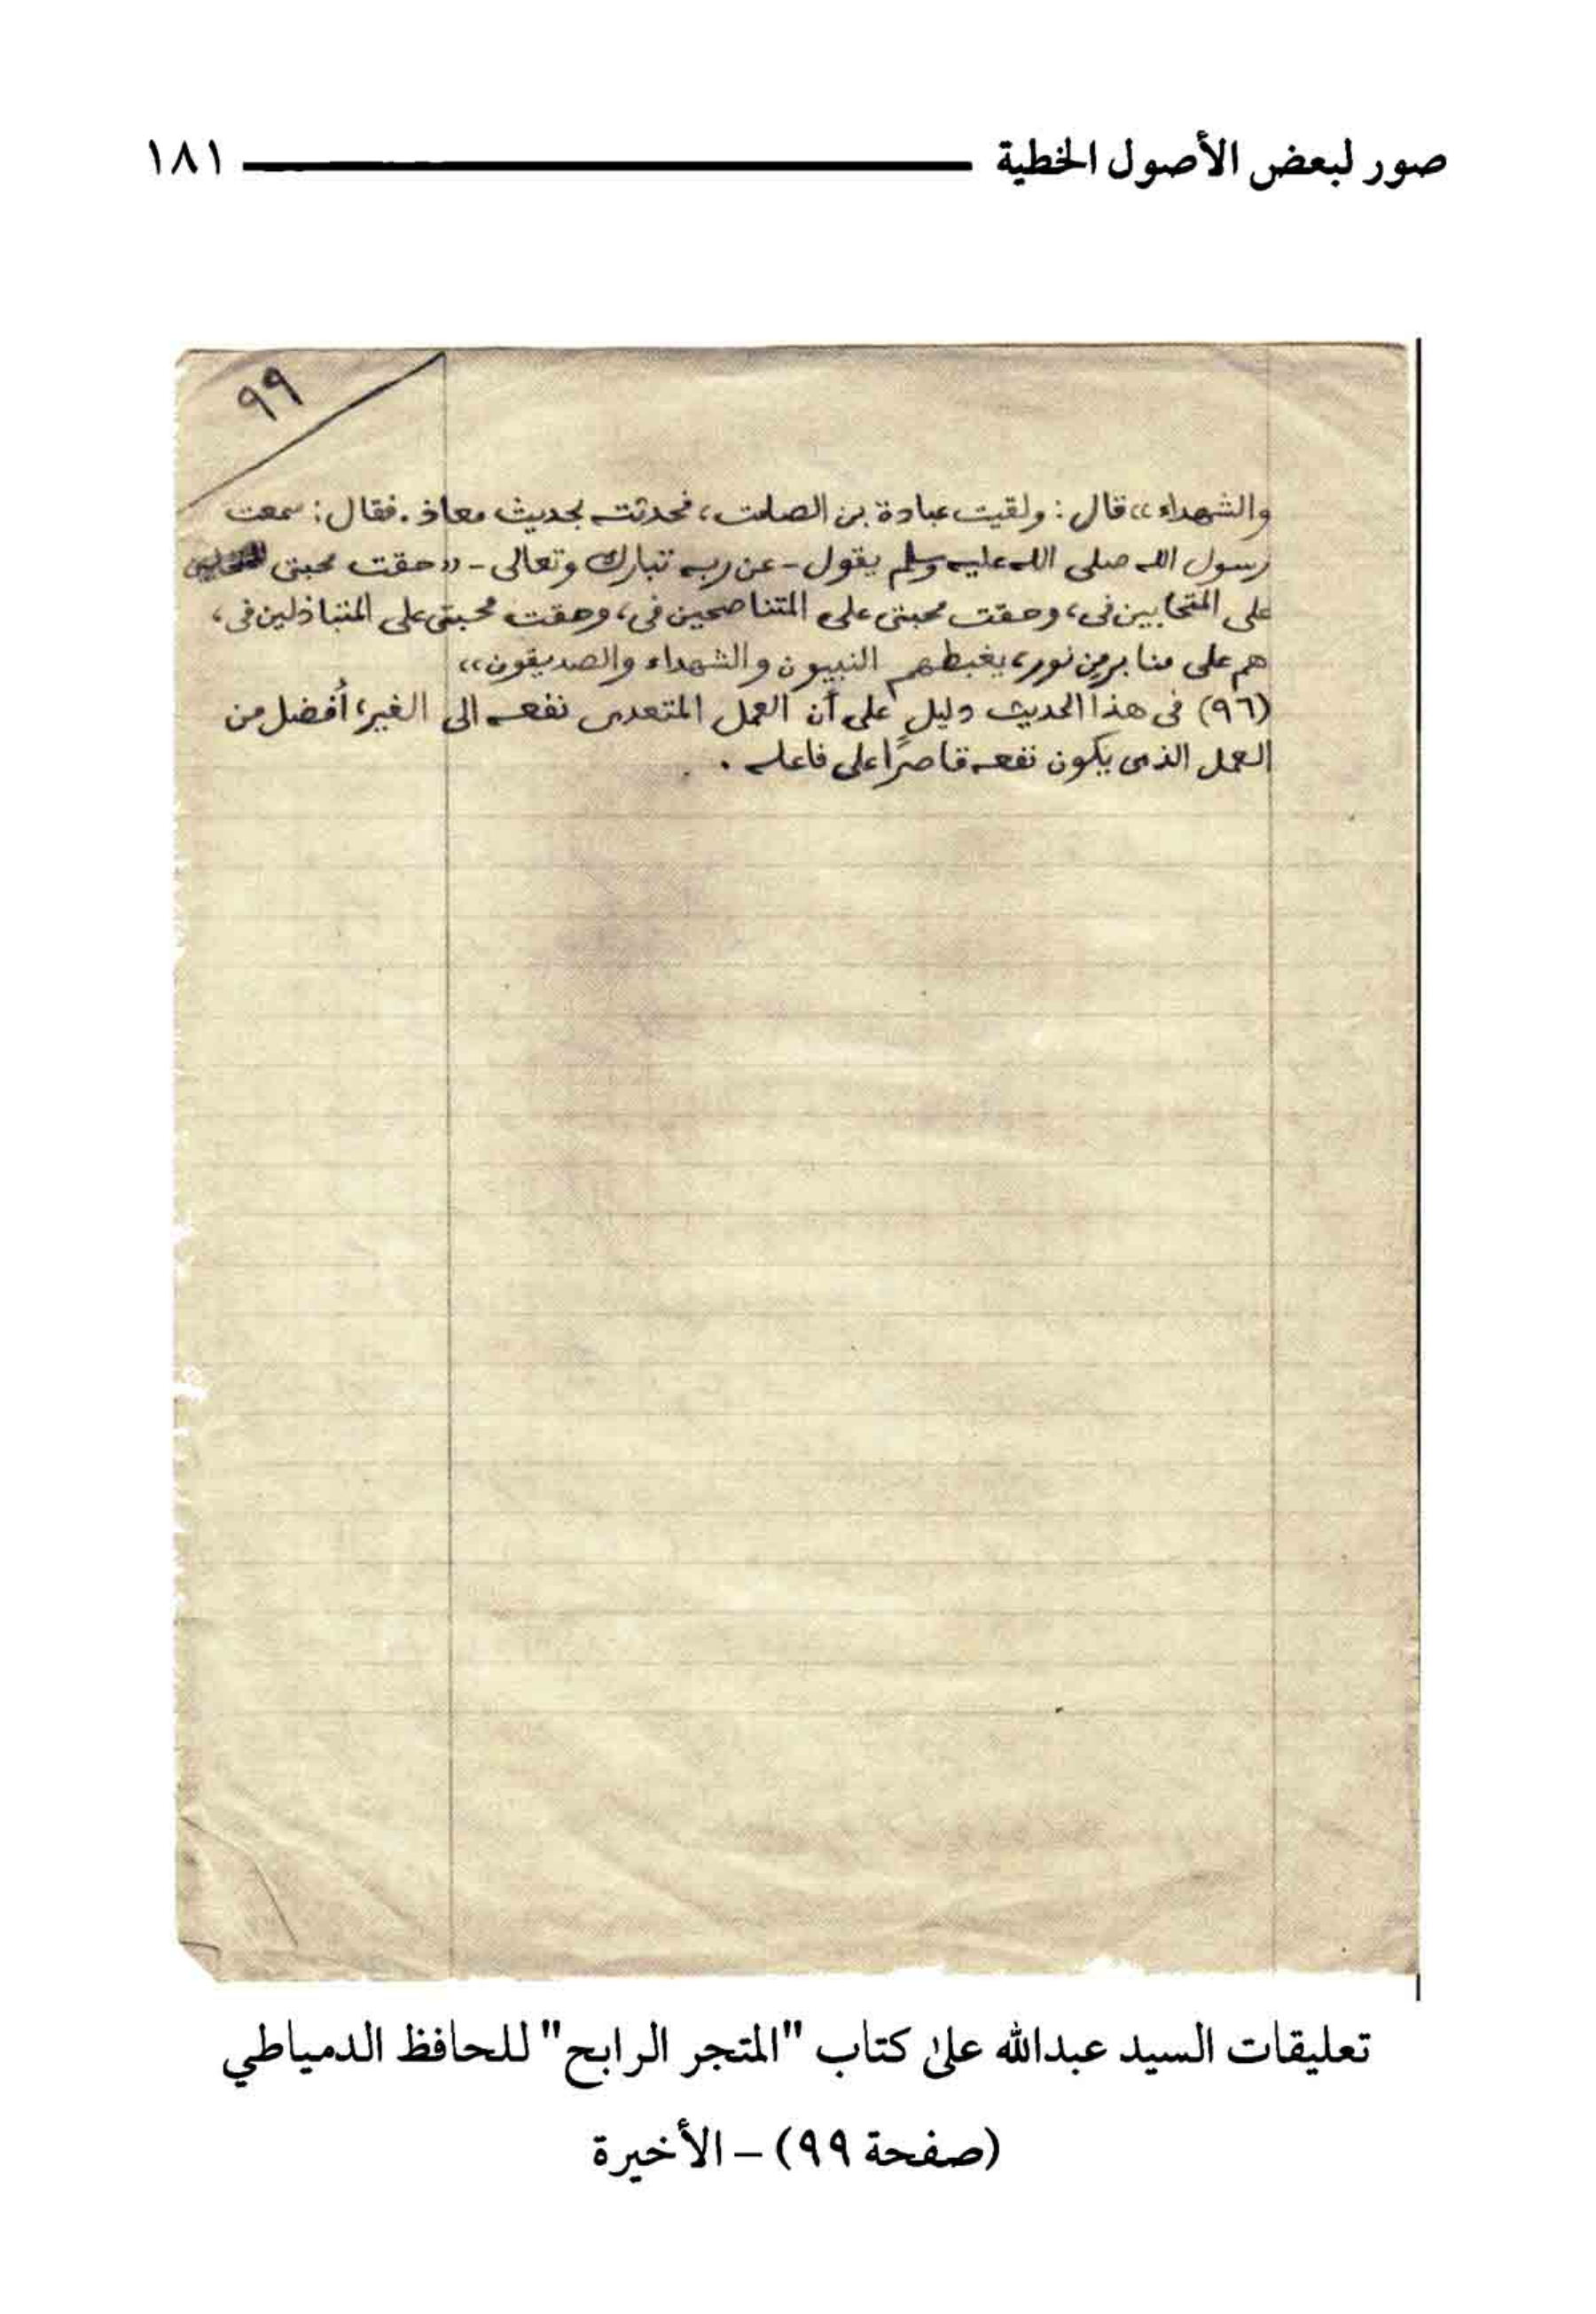 صور لبعض الأصول الخطية ١٨١
٩٩
والشهداء» قال: ولقيت عبادة بن الصامت، فحدثته بحديث معاذ. فقال: سمعت
رسول الله صلى الله عليه وسلم يقول - عن ربه تبارك وتعالى - «حقت محبتى
على المتحابين فى، وحقت محبتى على المتناصحين فى، وحقت محبتى على المتباذلين فى،
هم على منابر من نور، يغبطهم النبيون والشهداء والصديقون»
(٩٦) فى هذا الحديث دليل على أن العمل المتعدى نفعه الى الغير، أفضل من
العمل الذى يكون نفعه قاصرًا على فاعله .
تعليقات السيد عبدالله علىٰ كتاب "المتجر الرابح" للحافظ الدمياطي
(صفحة ٩٩) – الأخيرة